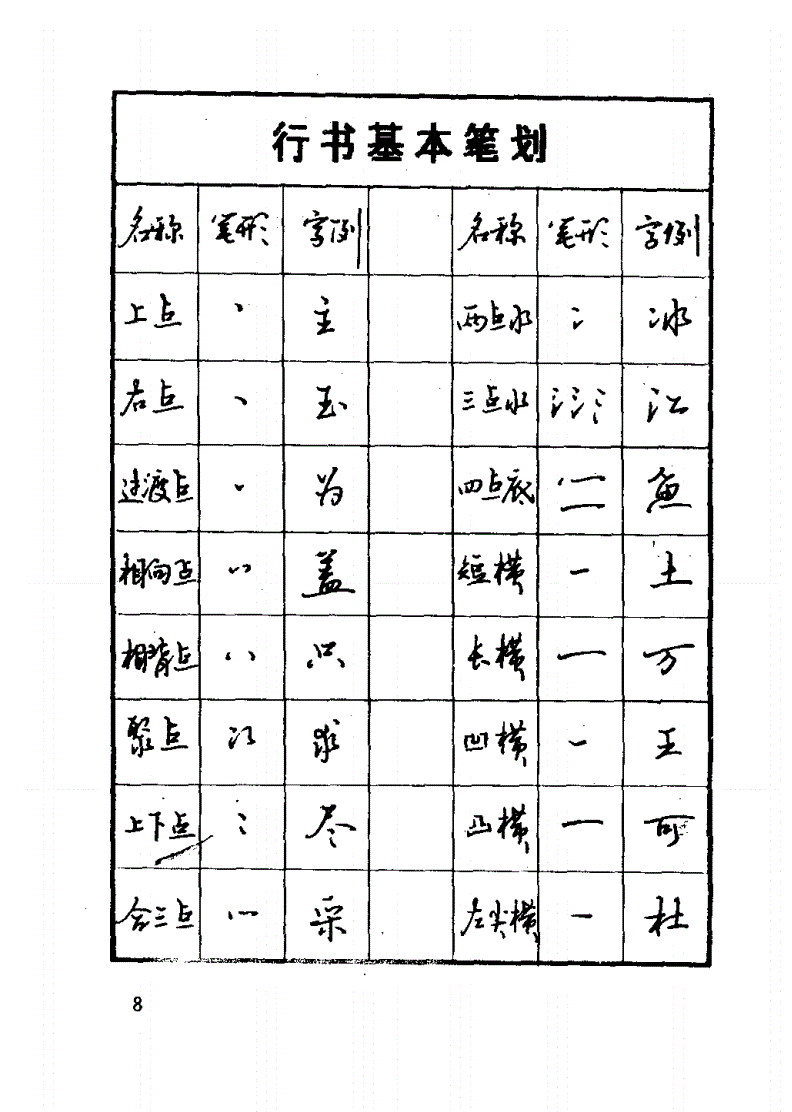 行书基本笔划
名称 笔形 字例 名称 笔形 字例
上点 丶 主 两点水 冫 冰
右点 丶 玉 三点水 氵氵氵 江
过渡点 丶 为 四点底 鱼
相向点 丷 盖 短横 一 土
相背点 八 只 长横 一 万
聚点 求 凹横 一 王
上下点 尽 凸横 一 可
合三点 采 左尖横 一 杜
8